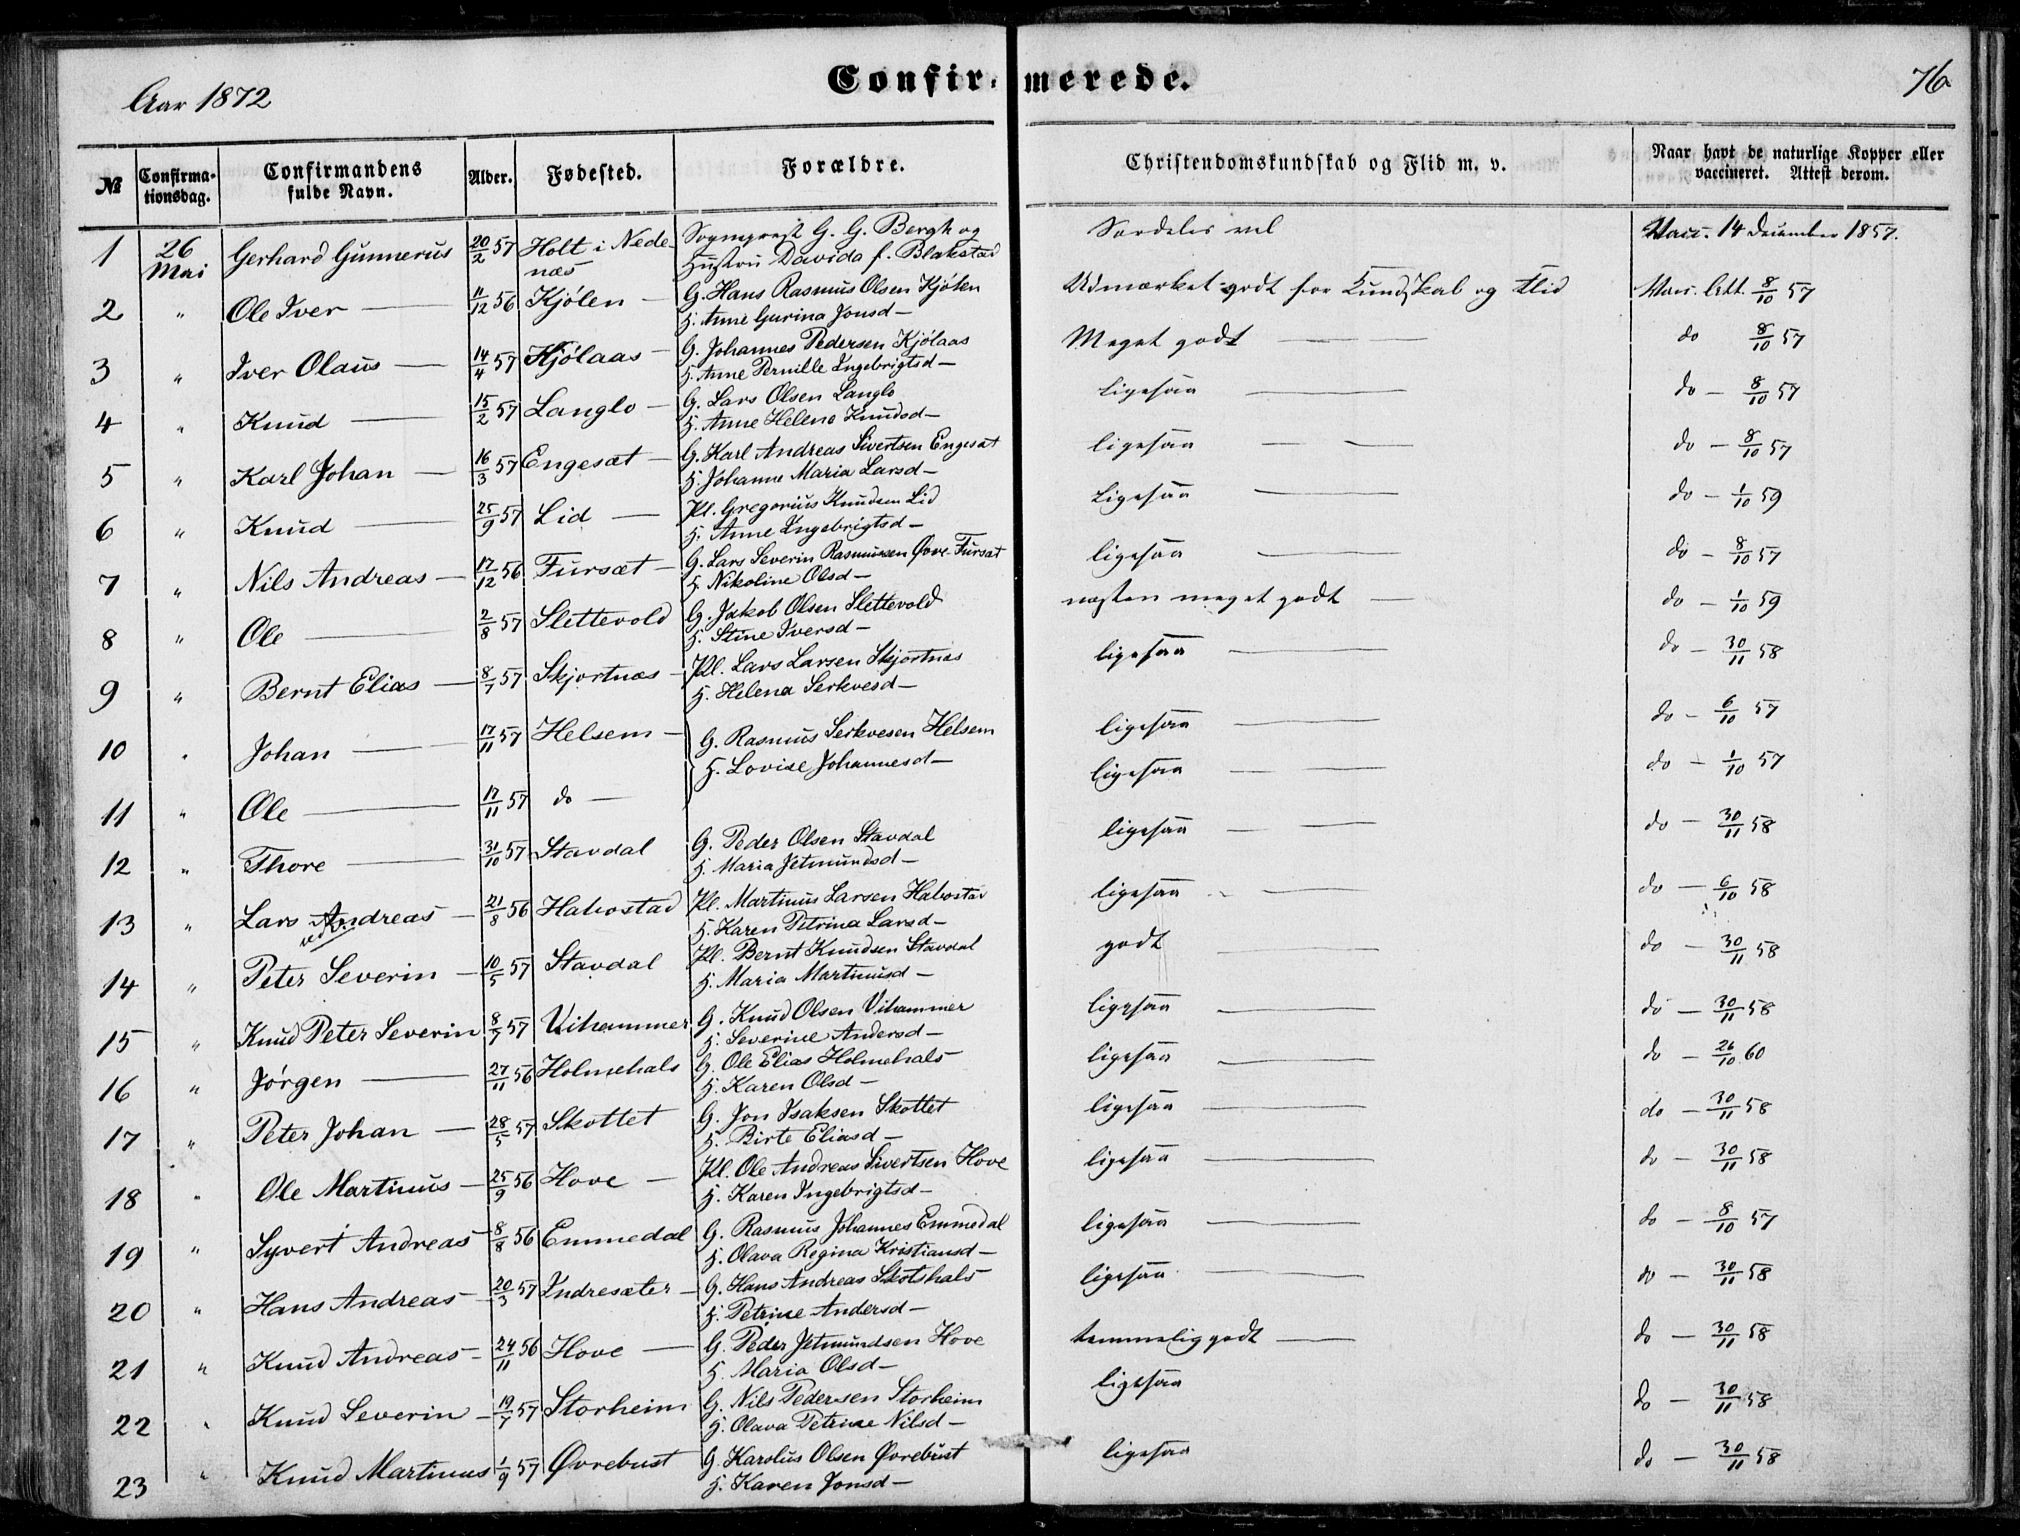 Aar 1872
Confirmerede.
76
№ Confirmationsdag. Confirmandens fulde Navn. Alder. Fødested. Forældre. Christendomskundskab og Flid m. v. Naar havt de naturlige Kopper eller vaccineret. Attest derom.
1 26 Mai Gerhard Gunnerus 20/2 57 Holt i Nedenæs Sogneprest G. G. Bergh og Hustru Davida f. Blakstad Særdeles vel Vacc. 14 December 1857.
2 " Ole Iver — 11/12 56 Kjölen — G. Hans Rasmus Olsen Kjölen H. Anne Gurina Jonsd — Udmærket godt for Kundskab og Flid Vacc. Att. 8/10 57
3 " Iver Olaus — 14/4 57 Kjölaas — G. Johannes Pedersen Kjölaas H. Anne Pernille Ingebrigtsd — Meget godt — — do 8/10 57
4 " Knud — 15/2 57 Langlo — G. Lars Olsen Langlo H. Anne Helene Knudsd — ligesaa — — do — 8/10 57
5 " Karl Johan — 16/3 57 Engesæt — G. Karl Andreas Sivertsen Engesæt H. Johanne Maria Larsd — ligesaa — — do — 8/10 57
6 " Knud — 25/9 57 Lid — Pl. Gregorius Knudsen Lid H. Anne Ingebrigtsd — Ligesaa — do — 1/10 59
7 " Nils Andreas — 17/12 56 Fursæt — G. Lars Severin Rasmussen Øvre Fursæt H. Nikoline Olsd — ligesaa — do — 8/10 57
8 " Ole — 2/8 57 Slettevold G. Jakob Olsen Slettevold H. Stine Iversd — næsten meget godt — do — 1/10 59
9 " Bernt Elias — 8/7 57 Skjortnæs — Pl. Lars Larsen Skjortnæs H. Helena Serkvesd — ligesaa — — do — 30/11 58
10 " Johan — 17/11 57 Helsem — G. Rasmus Serkvesen Helsem H. Lovise Johannesd — ligesaa — — do — 6/10 57
11 " Ole — 17/11 57 do — ligesaa — — do — 1/10 57
12 " Thore — 31/10 57 Stavdal G. Peder Olsen Stavdal H. Maria Jetmundsd — ligesaa — — do — 30/11 58
13 " Lars Andreas — 21/8 56 Habostad Pl. Martinus Larsen Habostad H. Karen Petrina Larsd — ligesaa — do — 6/10 58
14 " Peter Severin — 10/5 57 Stavdal Pl. Bernt Knudsen Stavdal H. Maria Martinusd — godt — do — 30/11 58
15 " Knud Peter Severin 8/7 57 Vihammer G. Knud Olsen Vihammer H. Severine Andersd — ligesaa — do — 30/11 58
16 " Jørgen — 27/11 56 Holmehals G. Ole Elias Holmehals H. Karen Olsd — ligesaa — do — 26/10 60
17 " Peter Johan — 28/5 57 Skottet G. Jon Isaksen Skottet H. Birte Eliasd — ligesaa — do — 30/11 58
18 " Ole Martinus — 25/9 56 Hove — Pl. Ole Andreas Sivertsen Hove H. Karen Ingebrigtsd — ligesaa — do — 30/11 58
19 " Syvert Andreas 8/8 56 Emmedal G. Rasmus Johannes Emmedal H. Olava Regina Kristiansd — ligesaa — do — 8/10 57
20 " Hans Andreas — 20/3 57 Indresæter — G. Hans Andreas Skotshals H. Petrine Andersd — ligesaa — do — 30/11 58
21 " Knud Andreas — 24/11 56 Hove — G. Peder Jetmundsen Hove H. Maria Olsd — temmelig godt — do — 30/11 58
22 " Knud Severin — 19/7 57 Storheim G. Nils Pedersen Storheim H. Olava Petrine Nilsd — ligesaa do — 30/11 58
23 " Knud Martinus 1/9 57 Øvrebust G. Karolus Olsen Øvrebust H. Karen Jonsd — ligesaa do — 30/11 58